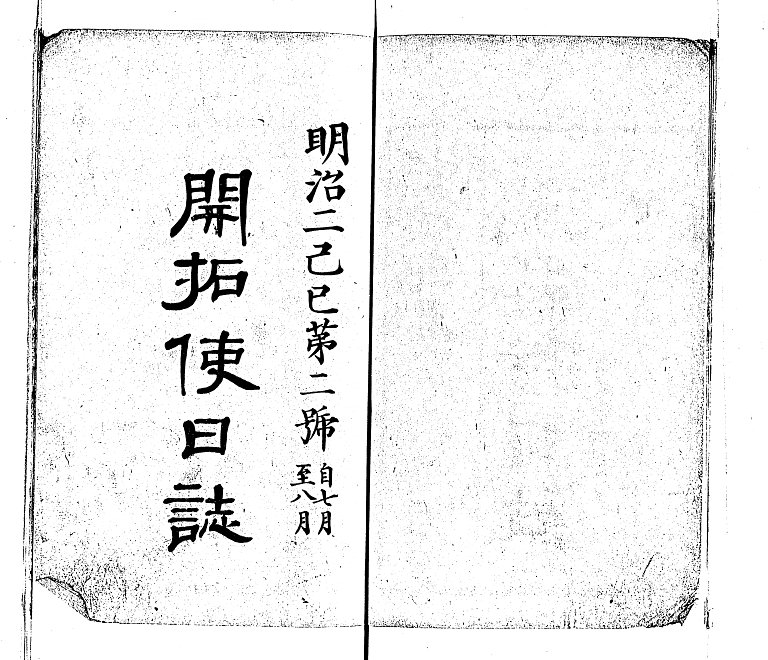 明治二己巳第二號
自七月
至八月
開拓使日誌